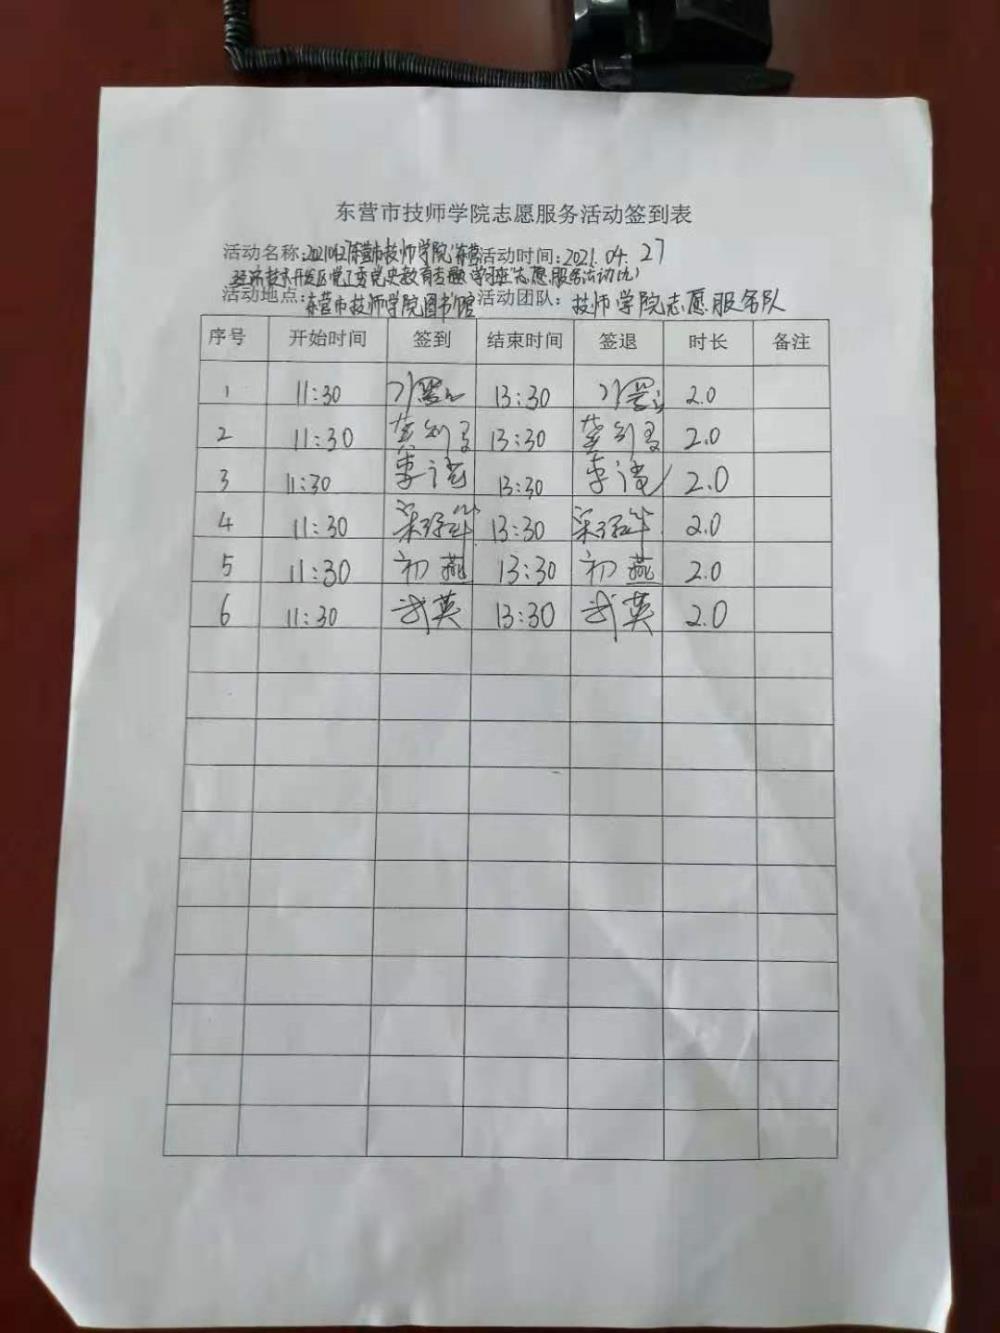 东营市技师学院志愿服务活动签到表
活动名称:东营市技师学院“东营 活动时间:2021.04.27
经济技术开发区党工委党史教育专题学习班”志愿服务活动(九)
活动地点:东营市技师学院图书馆 活动团队:技师学院志愿服务队
序号 开始时间 签到 结束时间 签退 时长 备注
1 11:30 13:30 2.0
2 11:30 13:30 2.0
3 11:30 李 13:30 李 2.0
4 11:30 13:30 2.0
5 11:30 初燕 13:30 初燕 2.0
6 11:30 武英 13:30 武英 2.0